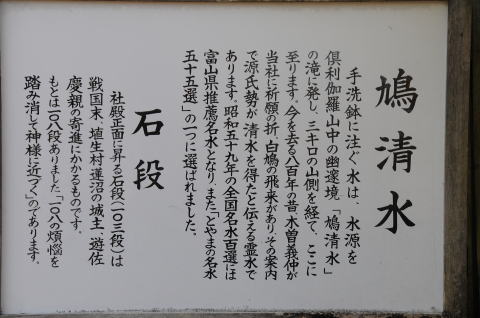 鳩清水
手洗鉢に注ぐ水は、水源を
倶利伽羅山中の幽邃境「鳩清水」
の滝に発し、三キロの山側を経て、ここに
至ります。今を去る八百年の昔、木曽義仲が
当社に祈願の折、白鳩の飛来があり、その案内
で源氏勢が清水を得たと伝える霊水で
あります。昭和五十九年の全国名水百選には
富山県推薦名水となり、また「とやまの名水
五十五選」の一つに選ばれました。
石段
社殿正面に昇る石段(一〇三段)は
戦国末、埴生村蓮沼の城主、遊佐
慶親の寄進にかかるものです。
もとは一〇八段ありました「一〇八の煩悩を
踏み消して神様に近づく」のであります。